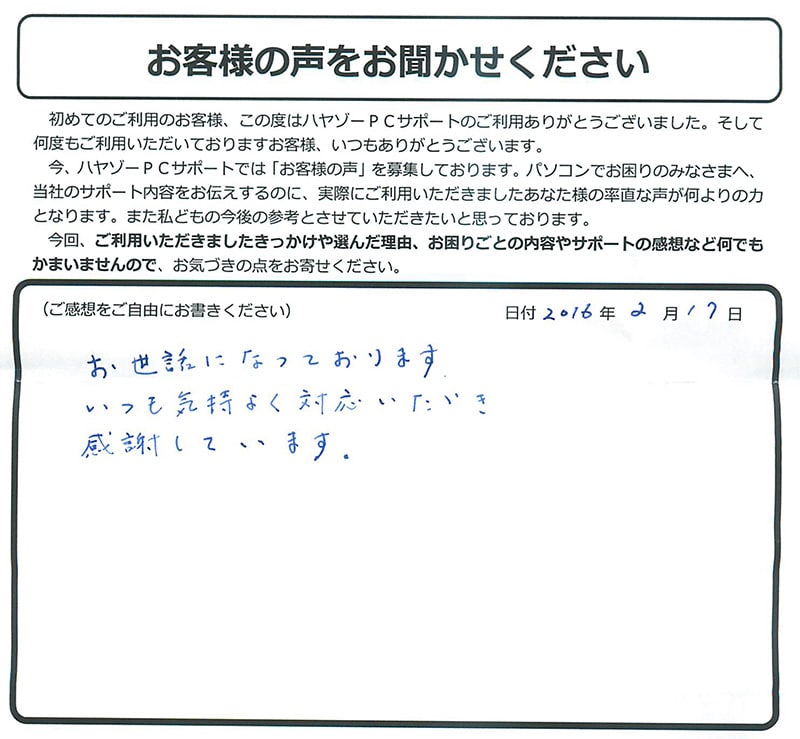 お客様の声をお聞かせください
初めてのご利用のお客様、この度はハヤゾーＰＣサポートのご利用ありがとうございました。そして
何度もご利用いただいておりますお客様、いつもありがとうございます。
今、ハヤゾーＰＣサポートでは「お客様の声」を募集しております。パソコンでお困りのみなさまへ、
当社のサポート内容をお伝えするのに、実際にご利用いただきましたあなた様の率直な声が何よりの力
となります。また私どもの今後の参考とさせていただきたいと思っております。
今回、ご利用いただきましたきっかけや選んだ理由、お困りごとの内容やサポートの感想など何でも
かまいませんので、お気づきの点をお寄せください。
（ご感想をご自由にお書きください） 日付 2016 年 2 月 17 日
お世話になっております
いつも気持よく対応いただき
感謝しています。